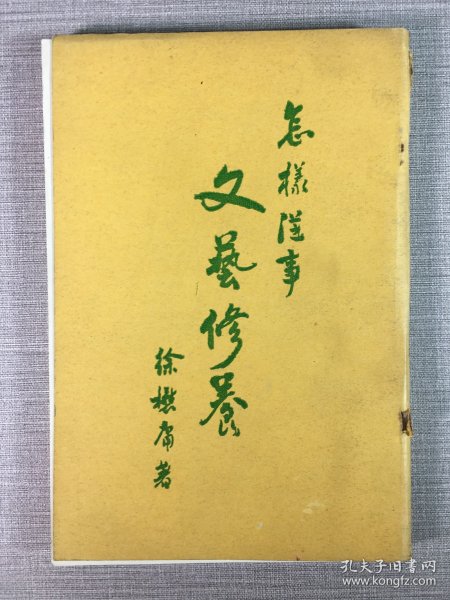 怎樣從事
文藝修養
徐懋庸著
孔夫子旧书网
www.kongfz.com